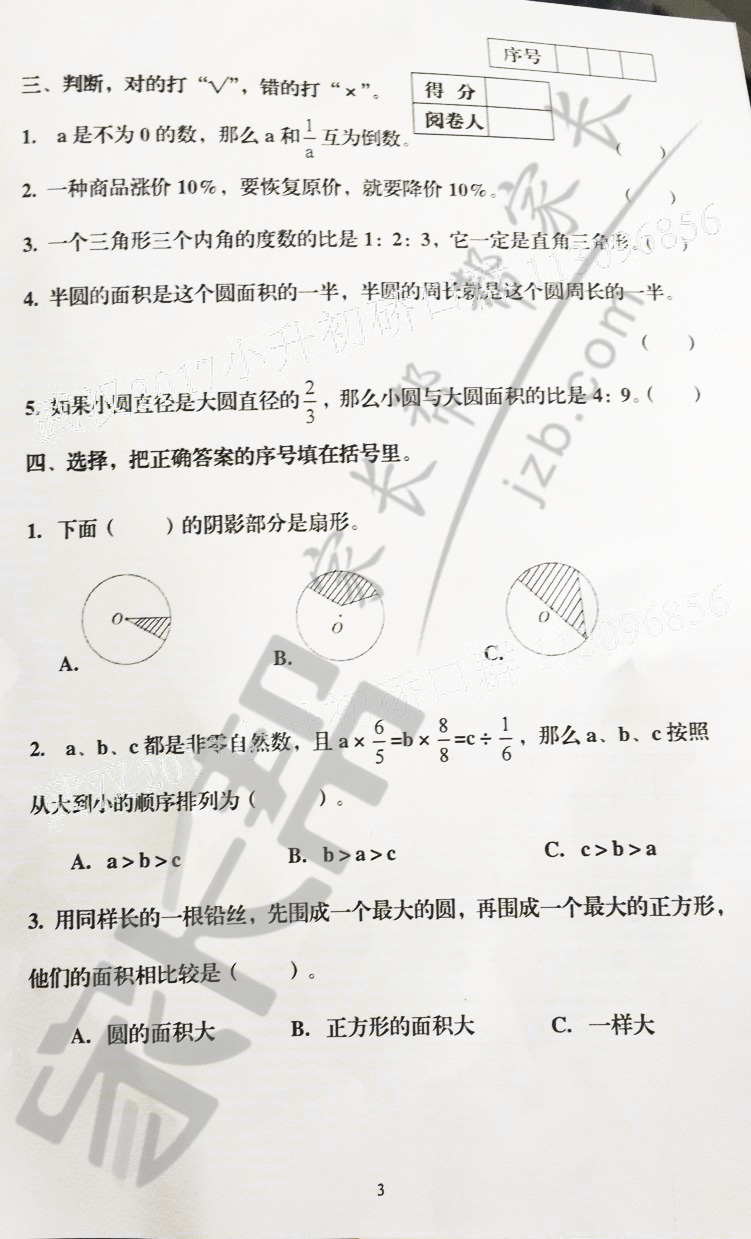 序号
三、判断，对的打“√”，错的打“×”。
得 分
阅卷人
1. a是不为0的数，那么a和1/a互为倒数。 （ ）
2. 一种商品涨价10%，要恢复原价，就要降价10%。 （ ）
3. 一个三角形三个内角的度数的比是1：2：3，它一定是直角三角形。（ ）
4. 半圆的面积是这个圆面积的一半，半圆的周长就是这个圆周长的一半。
（ ）
5. 如果小圆直径是大圆直径的2/3，那么小圆与大圆面积的比是4：9。（ ）
四、选择，把正确答案的序号填在括号里。
1. 下面（ ）的阴影部分是扇形。
O
O
O
A.
B.
C.
2. a、b、c都是非零自然数，且a×6/5=b×8/8=c÷1/6，那么a、b、c按照
从大到小的顺序排列为（ ）。
A. a>b>c
B. b>a>c
C. c>b>a
3. 用同样长的一根铅丝，先围成一个最大的圆，再围成一个最大的正方形，
他们的面积相比较是（ ）。
A. 圆的面积大
B. 正方形的面积大
C. 一样大
3
家长帮
家长帮家长
jzb.com